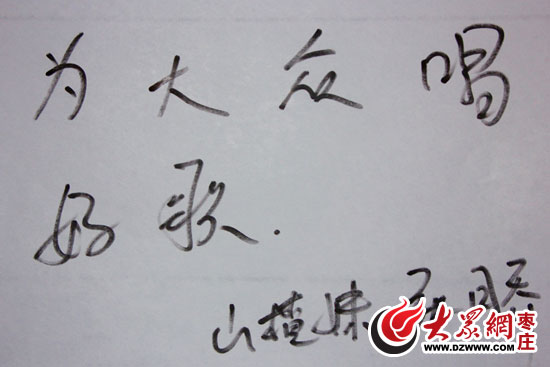 为大众唱
好歌.
山楂妹
大众網 枣庄
WWW.DZWWW.COM